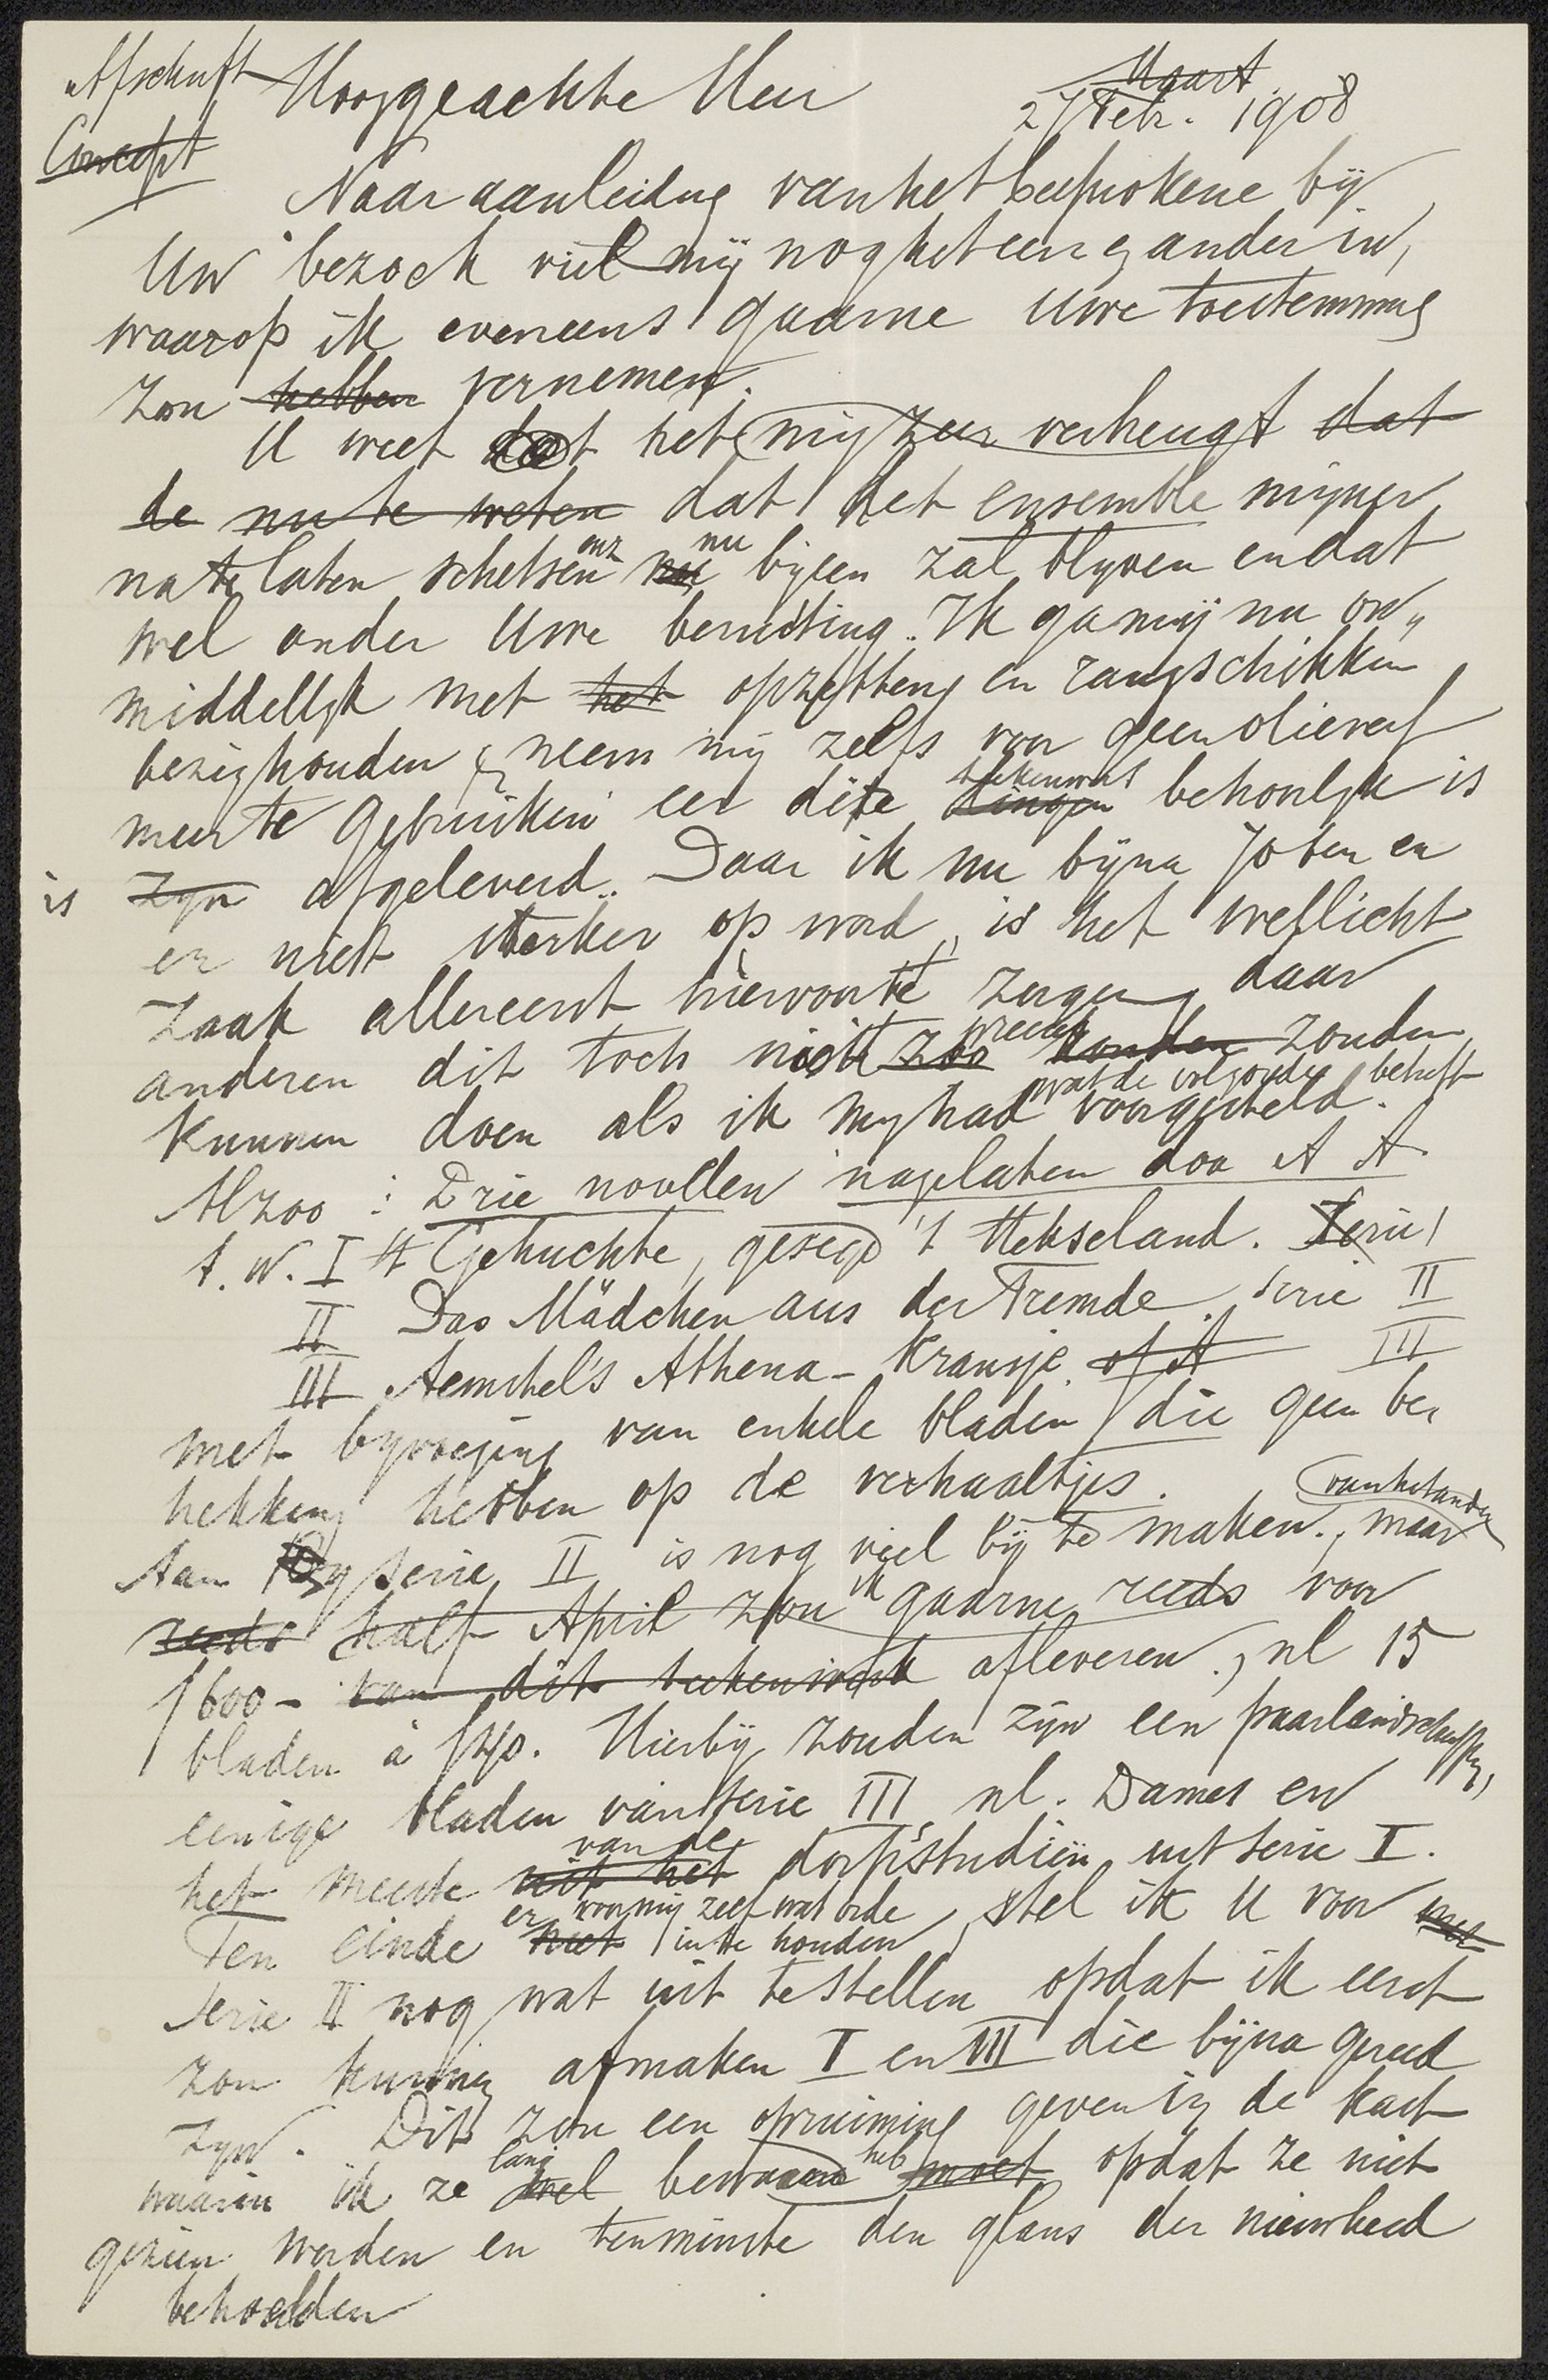 Afschrift Hooggeachte Heer Maart
Concept 27 Febr. 1908
Naar aanleiding van het besprokene bij
Uw bezoek viel mij nog het een & ander in,
waarop ik eveneens gaarne Uwe toestemming
zou hebben vernemen.
U weet dat het mij zeer verheugt dat
de nu te weten dat het ensemble mijner
na te laten schetsen enz nu nu bijeen zal blyven en dat
wel onder Uwe berusting. Ik ga mij nu on„
middellyk met het opzetten en rangschikken
bezighouden & neem mij zelfs voor geen olieverf
meer te gebruiken eer dit teekenwerk dingen behoorlyk is
is zyn afgeleverd. Daar ik nu byna 70 ben en
er niet sterker op word, is het wellicht
zaak allereerst hiervoor te zorgen, daar
anderen dit toch niet zoo precies konden zouden
kunnen doen als ik my had wat de volgorde betreft voorgesteld.
Alzoo : Drie novellen nagelaten door A A
t. w. I 't Gehuchte, gezegd 't Hekseland. Serie I
II Das Mädchen aus der Fremde. Serie II
III Aemstel's Athena-Kransje of A III
met byvoeging van enkele bladen die geen be„
trekking hebben op de verhaaltjes.
Aan Serie II is nog veel bij te maken., maar van het andere
reeds half April zou ik gaarne reeds voor
f 600 – van dit teekenwerk afleveren, nl 15
bladen à f 40. Hierbij zouden zijn een paar landschappen,
eenige bladen van serie III, nl. Dames en
het meeste uit het van de dorpsstudiën uit serie I.
Ten einde er niet voor mij zelf wat orde in te houden, stel ik U voor met
serie II nog wat uit te stellen opdat ik eerst
zou kunnen afmaken I en III die bijna gereed
zyn. Dit zou een opruiming geven in de kast
waarin ik ze lang wel bewaard heb moet opdat ze niet
gezien worden en tenminste den glans der nieuwheid
behoulden